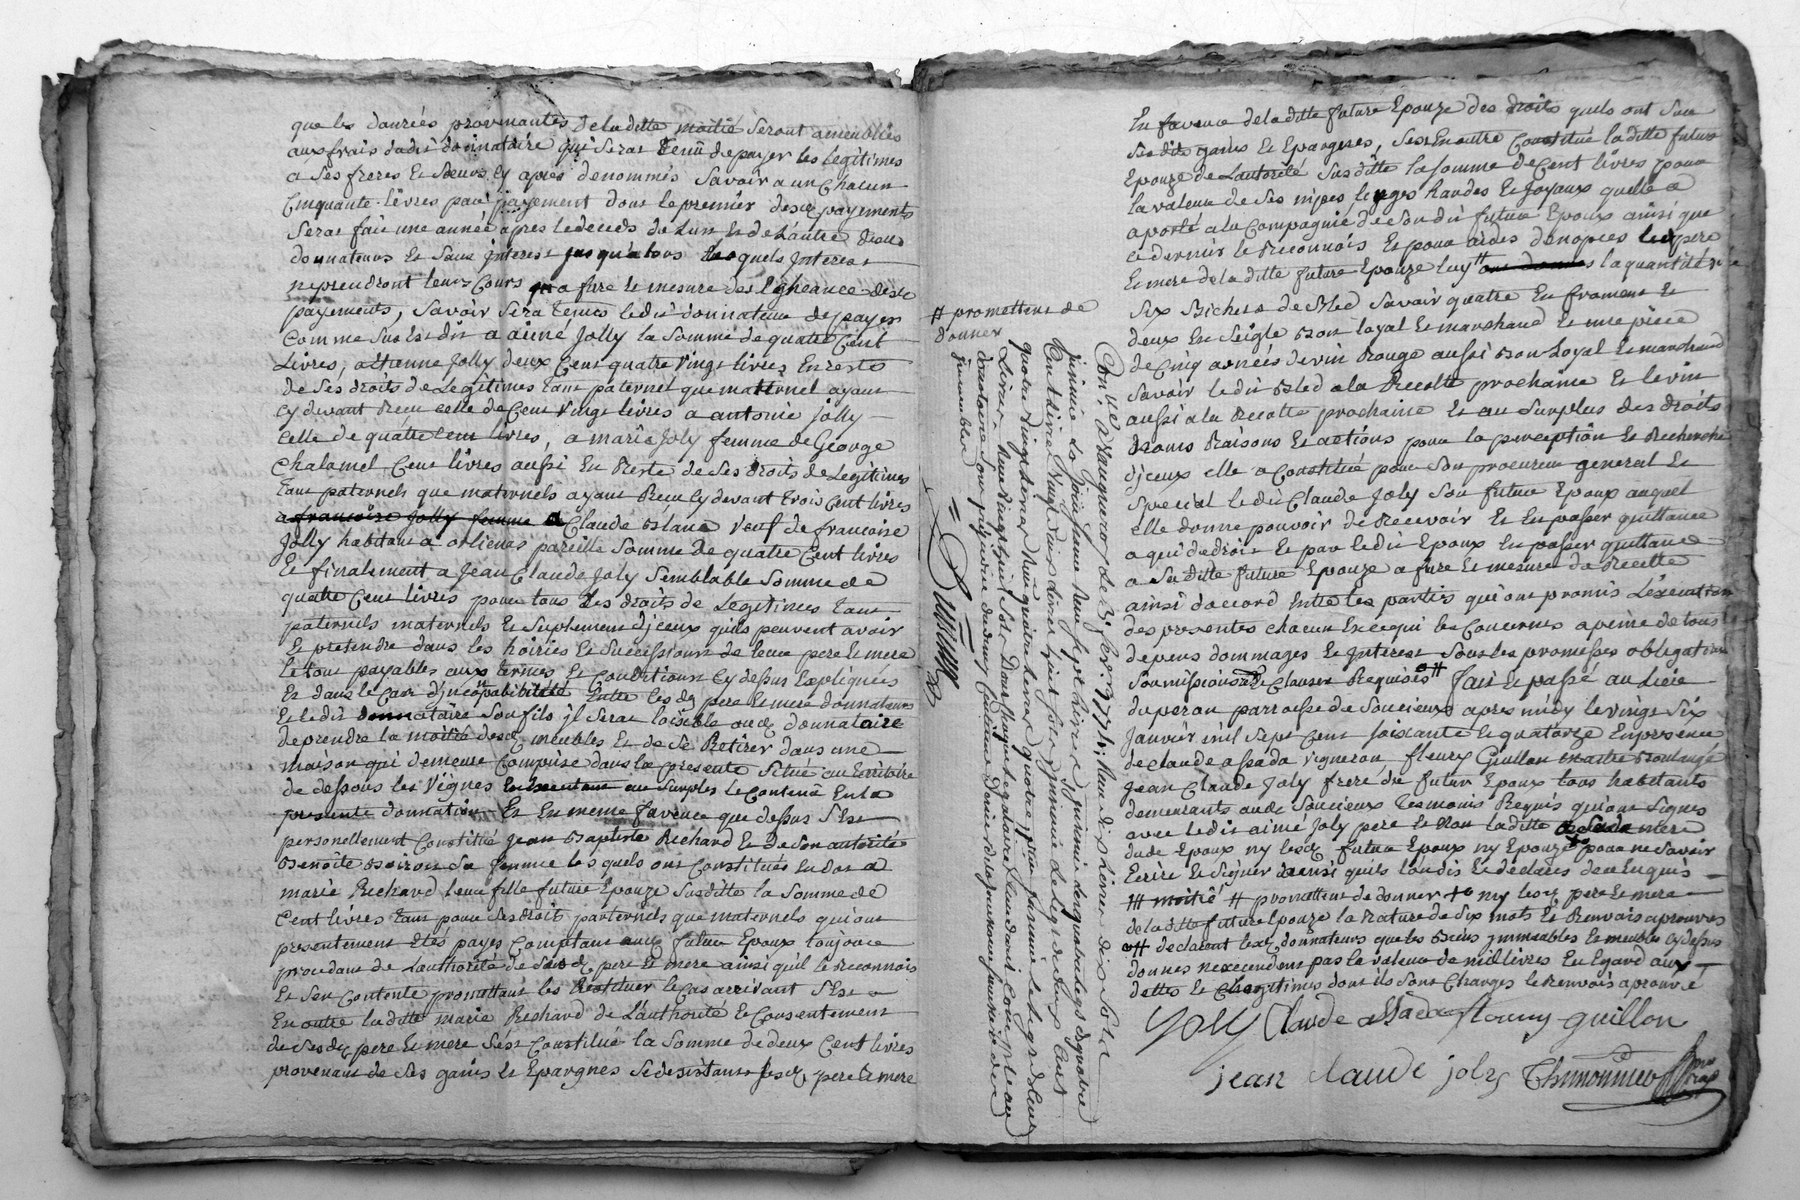 que les danrées provenantes de la ditte moitié seront ameublies
aux frais dudit donnataire qui serat tenu de payer les légitimes
a ses freres et soeurs cy après dénommés savoir a un chacun
Cinquante livres par payement dont le premier desq payements
serat fait une année apres le deceds de l'un et de l'autre desd
donnateurs et sans interest jusqu'alors lesquels interest
reprendront leurs cours a fure et mesure des echeance desd
payements, savoir sera tenus ledit donnateur de payer
Comme sus est dit a aimé Jolly la somme de quatre Cent
Livres, a etienne Jolly deux Cent quatre vingt livres en reste
de ses droits de Legitimes tant paternel que maternel ayant
cy devant Reçu celle de Cent vingt livres a antoine Jolly
celle de quatre Cent livres, a marie Joly femme de George
Chalamel Cent livres aussi en Reste de ses droits de Legitimes
tant paternels que maternels ayant Reçu cy devant trois Cent livres
a francoise Jolly femme a Claude Blanc veuf de francoise
Jolly habitant a orlienas pareille somme de quatre Cent livres
Et finalement a Jean Claude Joly semblable somme de
quatre Cent livres pour tous les droits de Legitimes tant
paternels maternels et suplement djceux quils peuvent avoir
Et pretendre dans les hoiries et successions de leur pere et mere
le tout payables aux termes et conditions cy dessus expliquées
Et dans le cas d'jncompabibilité Entre lesdq pere et mere donnateurs
Et ledit donnataire son fils jl serat loisible audq donnataire
de prendre la moitié desq meubles et de se Retirer dans une
maison qui demeure Comprise dans la presente située au territoire
de dessous les vignes au surples le contenu en la
presente donnation Et en meme faveur que dessus s'est
personellement Constitué Jean Baptiste Richard et de son autorité
Benoite Boiron sa femme lesquels ont Constitués en dot a
marie Richard leur fille future Epouze susditte la somme de
Cent livres tant pour ses droit parternels que maternels qui ont
presentement etés payés Comptant auq futur Epoux toujours
procedant de l'authorité de sesdq pere et mere ainsi qu'il le reconnois
Et s'en Contente promettant les Restituer le cas arrivant s'Est
En outre la ditte marie Richard de l'authorité et Consentement
de ses dq pere et mere s'est Constitué la somme de deux Cent livres
provenant de ses gains et Epargnes se desistant sesq pere et mere
# promettent de
donner
Con.lé a Vaugneray le 3. fev.r 1774; Reçu dix livres dix sols
En faveur de la ditte future Epouze des droits quels ont sur
sesdits gains et Epargnes, s'est en outre Constitué la ditte future
Epouze de l'autorité susditte la somme de Cent livres pour
la valeur de ses nipes linges hardes et joyaux quelle a
aporté a la Compagnie de son dit futur Epoux ainsi que
ce dernier le Reconnois Et pour aides de nopces lesq pere
Et mere de la ditte future Epouze luy # la quantité de
Six Bichets de Bled savoir quatre en froment et
deux en seigle Bon loyal et marchand et une piece
de Cinq années de vin Rouge aussi Bon Loyal et marchand
savoir ledit Bled a la Recolte prochaine et le vin
aussi a la Recolte prochaine Et au surplus des droits
Noms Raisons et actions pour la perception et Recherche
djceux elle a Constitué pour son procureur general et
special ledit Claude Joly son futur Epoux auquel
elle donne pouvoir de Recevoir et en passer quittance
a qui de droit Et par ledit Epoux en passer quittance
a sa ditte future Epouze a fure et mesure de Recette
ainsi d'accord Entre les partis qui ont promis l'Execution
des presentes chacun En ce qui les Concernes a peine de tous
depens dommages et Interest sous les promesses obligation
soumissions et Clauses Requises Fait et passé au lieu
du peron parroisse de Soucieux apres midy le vingt six
Janvier mil sept Cent soixante et quatorze En presence
de claude assada vigneron fleury Guillon maitre Boulangé
Jean Claude Joly frere du futur Epoux tous habitants
demeurants audt Soucieux Temoins Requis qui ont signes
avec ledit aimé Joly pere et non la ditte mere
dudt Epoux ny lesq futur Epoux ny Epouze pour ne savoir
Ecrire et signer ainsi quils l'ondis et declares de ce Enquis
# moitié # promettent de donner + ny lesq pere et mere
de la ditte future Epouze la Rature de Six mots et Renvois aprouves
# declarent lesq donnateurs que les Biens jmmeubles et meubles cy dessus
donnes nexcendent pas la valeur de mil livres En Egard aux
dettes et Legitimes dont ils sont Charges le Renvois aprouvé
Joly Claude assada fleury guillon
jean claude joly Thimonnier